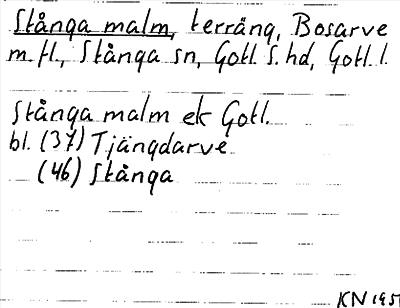 Stånga malm, terräng, Bosarve
m.fl., Stånga sn, Gotl. S. hd, Gotl. l.
Stånga malm ek Gotl.
bl. (37) Tjängdarve
(46) Stånga
KN 195